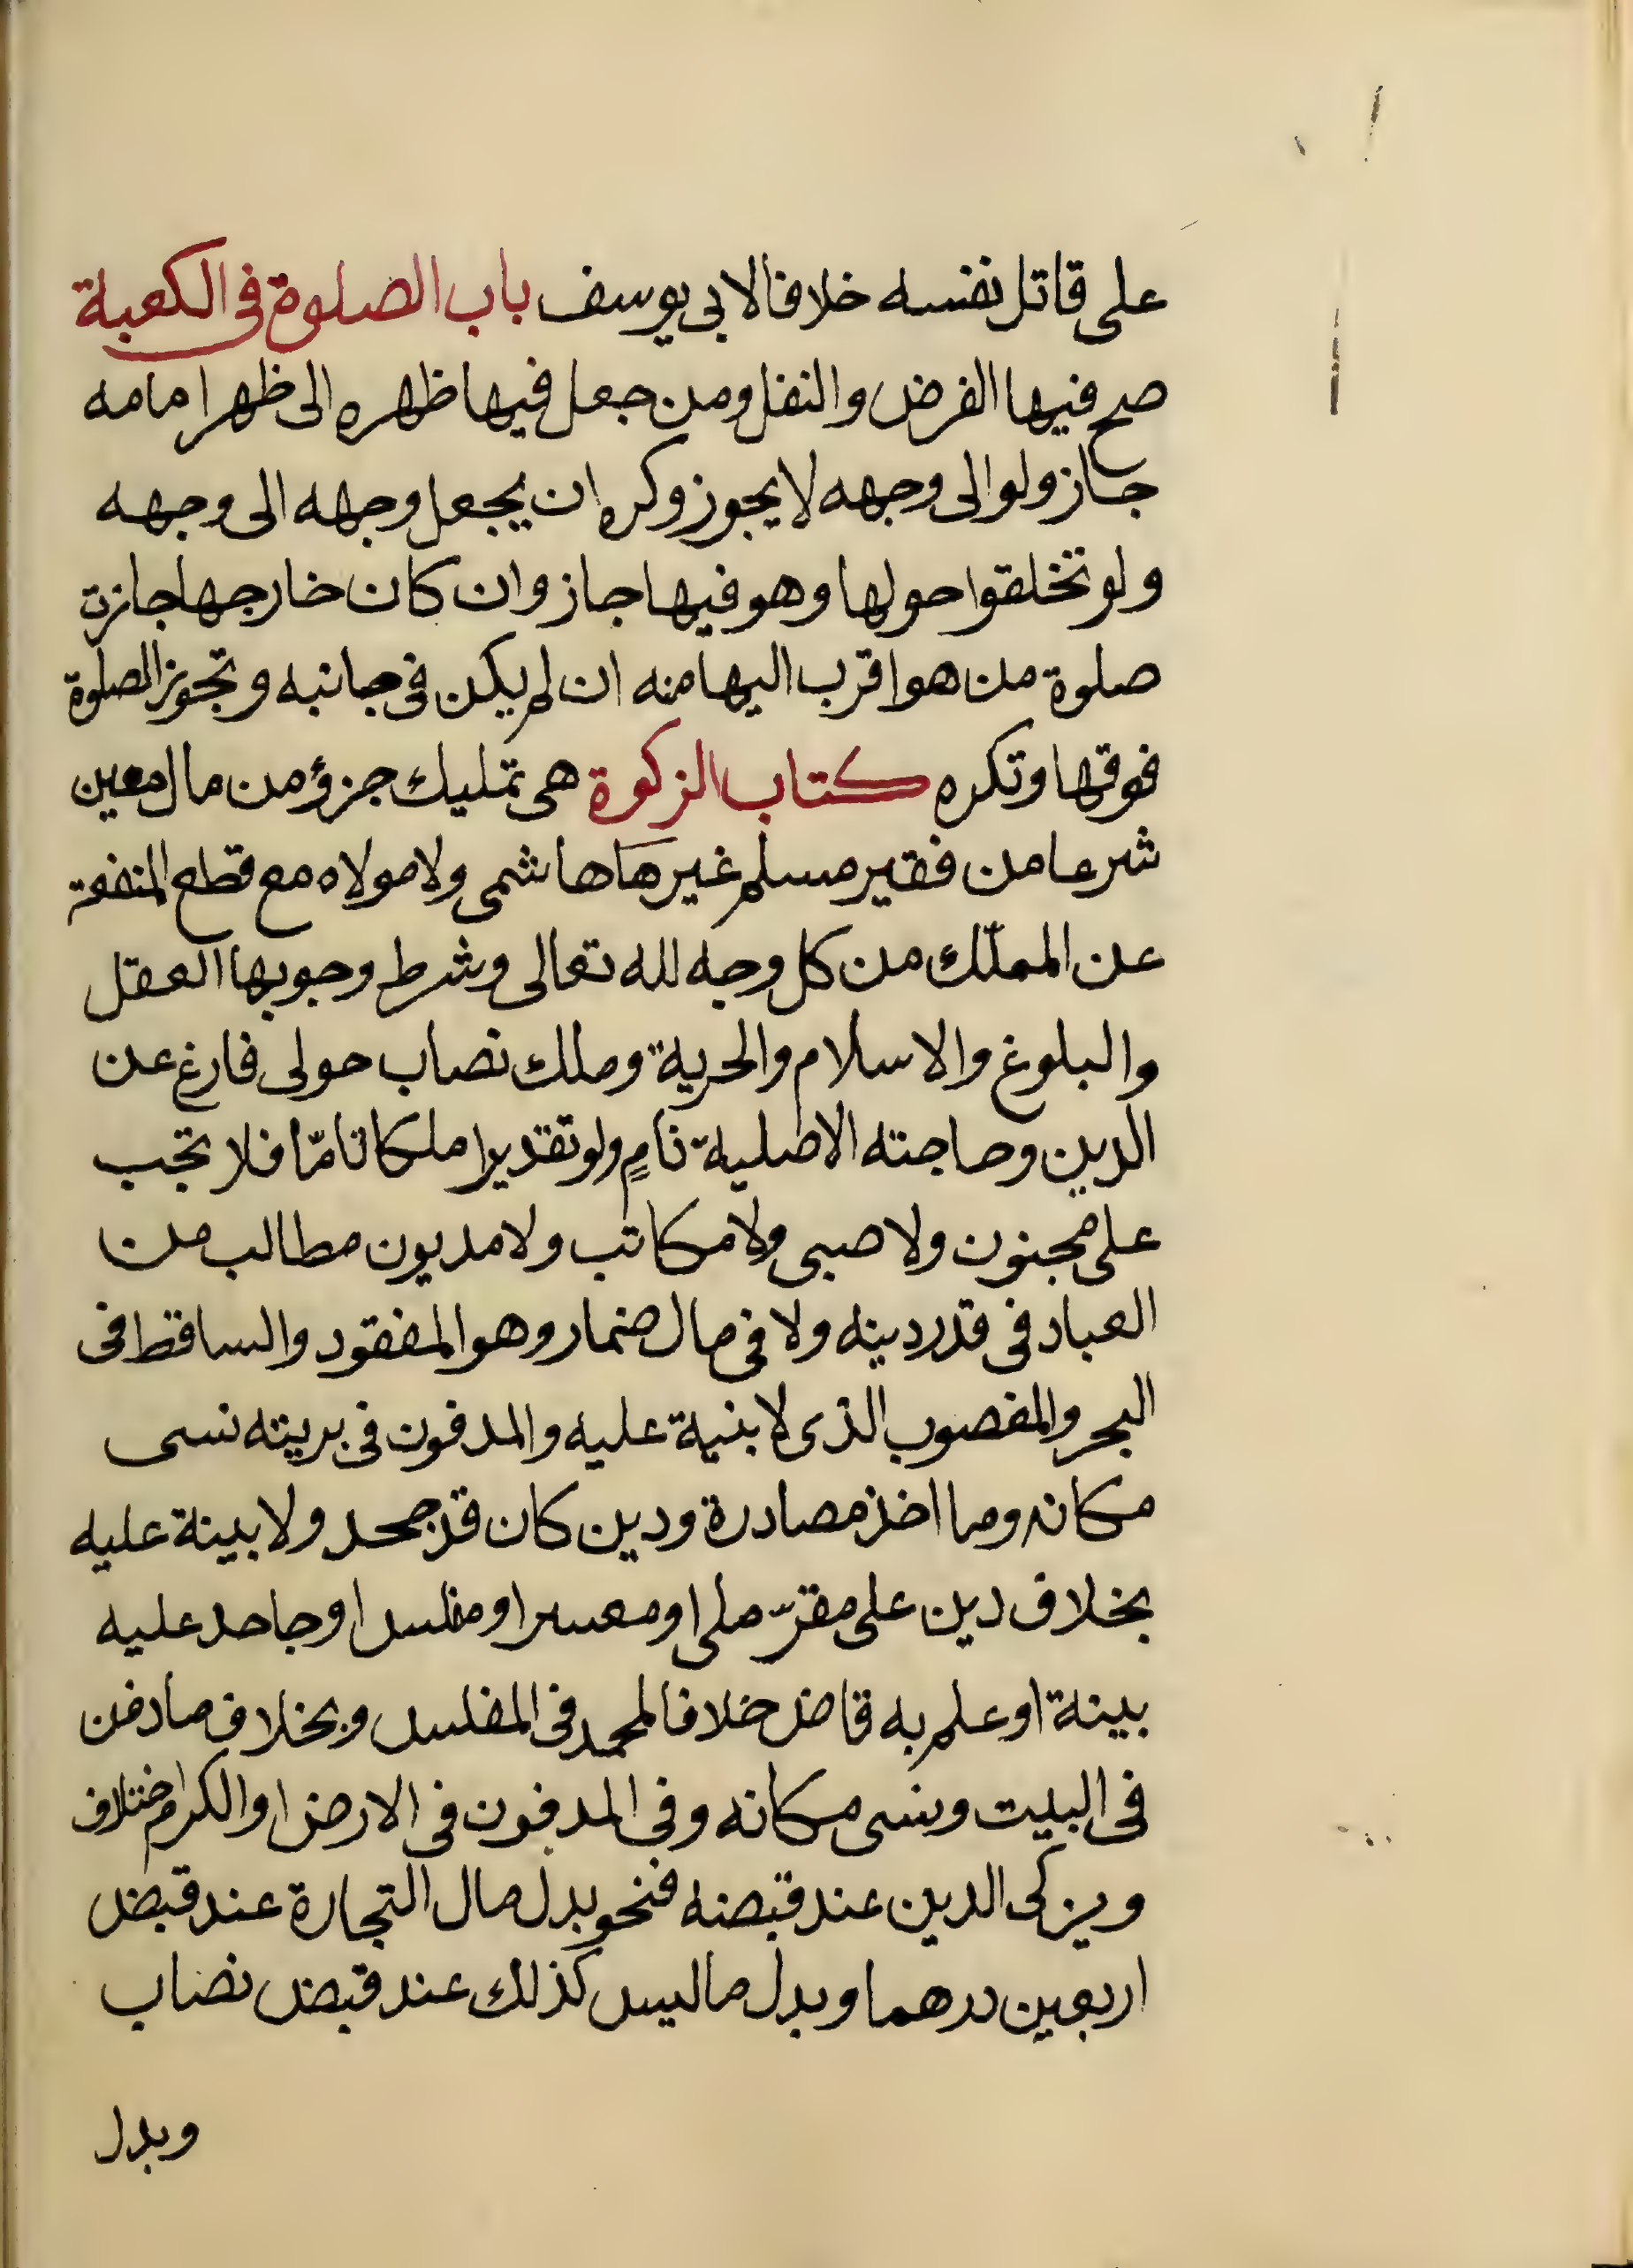 على قاتل نفسه خلافا لابى يوسف باب الصلوة فى الكعبة
صح فيها الفرض والنفل ومن جعل فيها ظهره الى ظهر امامه
جاز ولو الى وجهه لا يجوز وكره ان يجعل وجهه الى وجهه
ولو تخلقوا حولها وهو فيها جاز وان كان خارجها جازت
صلوة من هو اقرب اليها منه ان لم يكن فى جانبه وتجوز الصلوة
فوقها وتكره كتاب الزكوة هى تمليك جزؤ من مال معين
شرعا من فقير مسلم غير هاها شمى ولا مولاه مع قطع المنفعة
عن المملّك من كل وجه لله تعالى وشرط وجوبها العقل
والبلوغ والاسلام والحرية وملك نصاب حولى فارغ عن
الدين وحاجته الاصلية نامٍ ولو تقديرا ملكا تامّا فلا تجب
على مجنون ولا صبى ولا مكاتب ولا مديون مطالب من
العباد فى قدر دينه ولا فى مال ضمار وهو المفقود والساقط فى
البحر والمغصوب الذى لا بنية عليه والمدفون فى بريته نسى
مكانه وما اخذ مصادرة ودين كان قد جحد ولا بينة عليه
بخلاف دين على مقرّ ملى او معسر او مفلس او جاحد عليه
بينة او علم به قاض خلافا لمحمد فى المفلس وبخلاف ما دفن
فى البيت ونسى مكانه وفى المدفون فى الارض او الكرم اختلاف
ويزكى الدين عند قبضه فنحو بدل مال التجارة عند قبض
اربعين درهما وبدل ما ليس كذلك عند قبض نصاب
وبدل